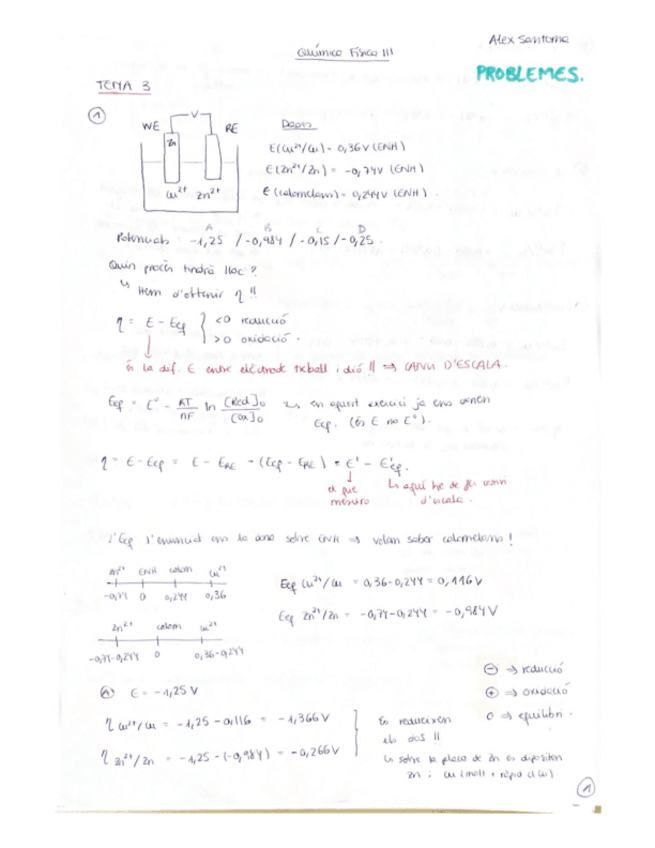 Alex Santoma
Química Física III
PROBLEMES.
TEMA 3
1
V
WE
RE
Zn
Cu²⁺ Zn²⁺
Dades
E(Cu²⁺/Cu) = 0,36V (ENH)
E(Zn²⁺/Zn) = -0,74V (ENH)
E(calomelans) = 0,244V (ENH).
A B C D
Potencials: -1,25 / -0,984 / -0,15 / -0,25.
Quin procés tindrà lloc?
↳ Hem d'obtenir η!!
η = E - Eeq } <0 reducció
>0 oxidació.
És la dif. E entre elèctrode treball i dió!! ⇒ CANVI D'ESCALA.
Eeq = E° - RT/nF ln [Red]₀/[Ox]₀ ↳ en aquest exercici ja ens donen
Eeq. (És E no E°).
η = E - Eeq = E - ERE - (Eeq - ERE) = E' - E'eq.
el que
mesuro
↳ aquí he de fer canvi
d'escala.
l'Eeq l'enunciat em la dona sobre ENH ⇒ volem saber calomelans!
Zn²⁺ ENH calom Cu²⁺
-0,74 0 0,244 0,36
Eeq Cu²⁺/Cu = 0,36-0,244 = 0,116V
Eeq Zn²⁺/Zn = -0,74-0,244 = -0,984V
Zn²⁺ calom Cu²⁺
-0,74-0,244 0 0,36-0,244
⊖ ⇒ reducció
⊕ ⇒ oxidació
0 ⇒ equilibri.
A E = -1,25 V
η Cu²⁺/Cu = -1,25 - 0,116 = -1,366V
η Zn²⁺/Zn = -1,25 - (-0,984) = -0,266V
Es redueixen
els dos!!
↳ sobre la placa de Zn es dipositen
Zn i Cu (molt + ràpid el Cu).
1